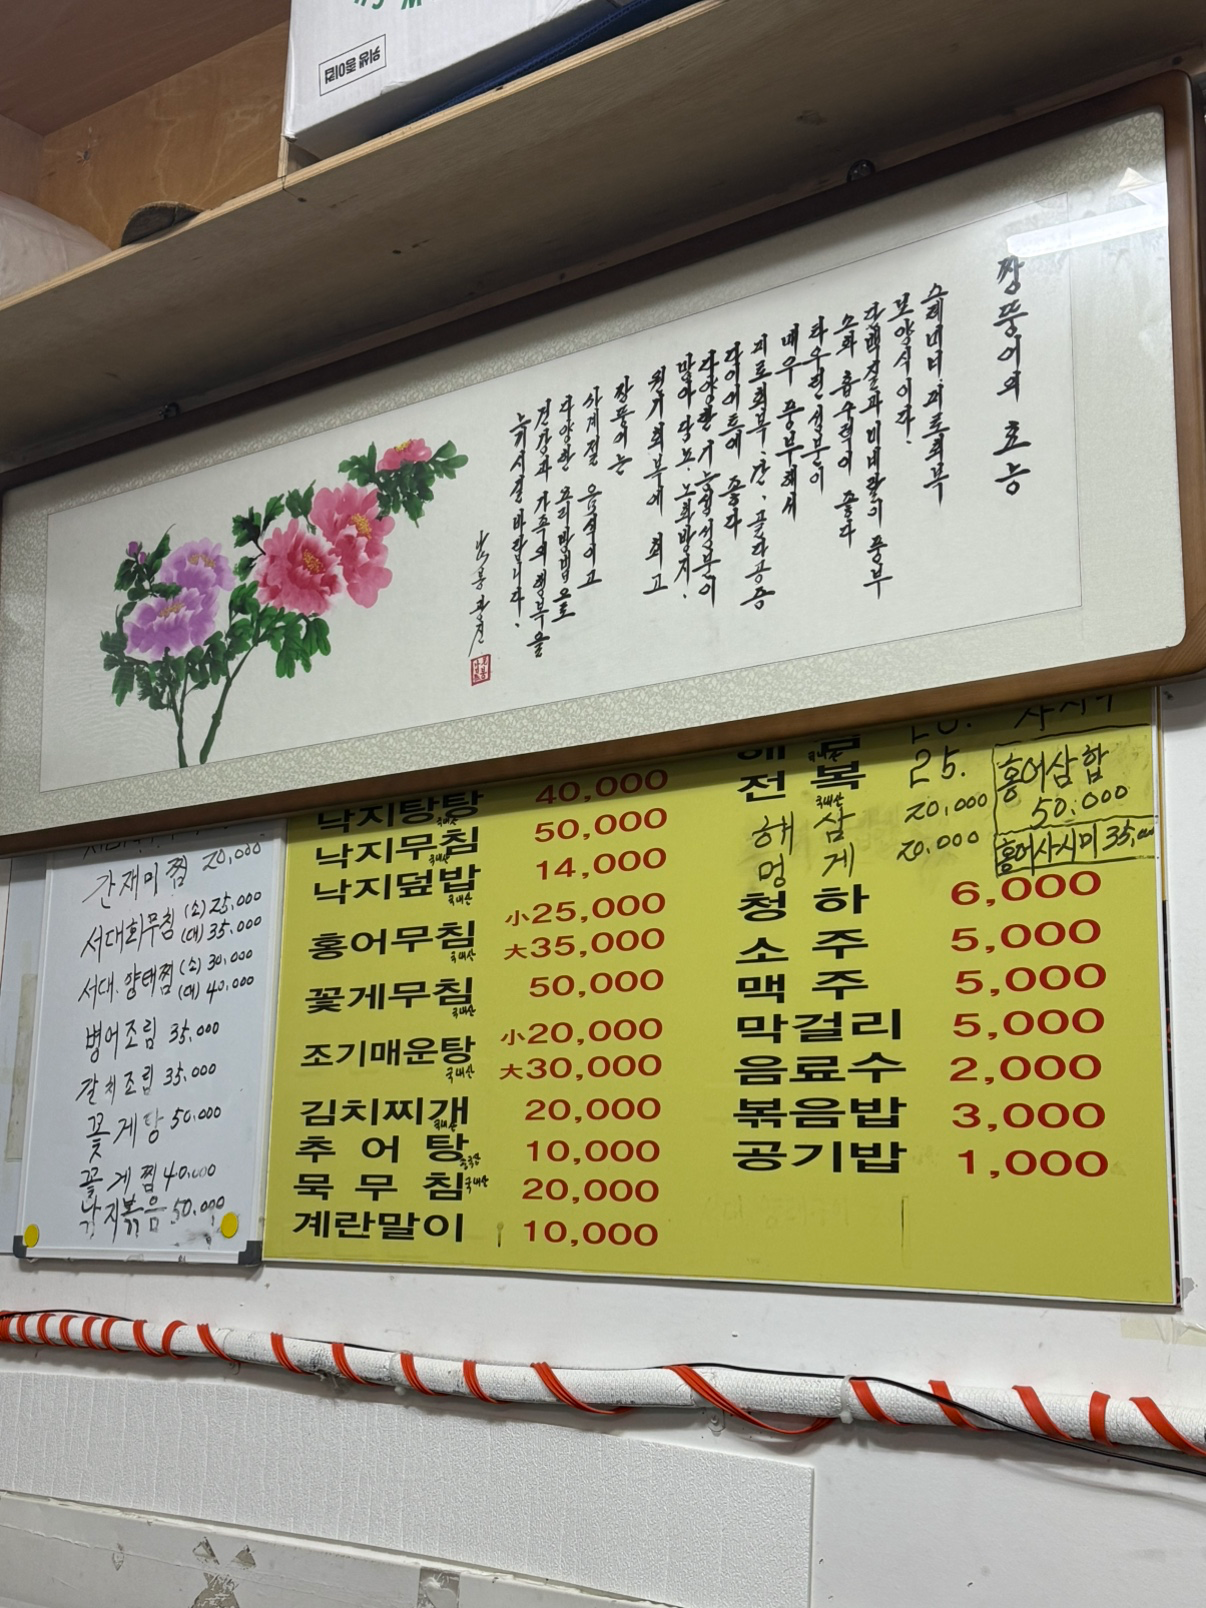 위생 종이컵
짱뚱어의 효능
스테미너 피로회복
보양식이다.
단백질과 미네랄이 풍부
소화 흡수력이 좋다
타우린 성분이
매우 풍부해서
피로회복, 간, 골다공증
다이어트에 좋다
다양한 기능성성분이
많아 당뇨, 노화방지,
원기회복에 최고
짱뚱어는
사계절 음식이고
다양한 요리방법으로
건강과 가족의 행복을
느끼시길 바랍니다.
간재미찜 20,000
서대회무침 (소) 25,000
(대) 35,000
서대. 양태찜 (소) 30,000
(대) 40,000
병어조림 35,000
갈치조림 35,000
꽃게탕 50,000
꽃게찜 40,000
낙지볶음 50,000
낙지탕탕 국내산 40,000
낙지무침 국내산 50,000
낙지덮밥 국내산 14,000
홍어무침 국내산 小25,000
大35,000
꽃게무침 국내산 50,000
조기매운탕 국내산 小20,000
大30,000
김치찌개 국내산 20,000
추어탕 10,000
묵무침 국내산 20,000
계란말이 10,000
전복 국내산 25.
해삼 국내산 20,000
멍게 20,000
홍어삼합
50.000
홍어사시미 35,000
청하 6,000
소주 5,000
맥주 5,000
막걸리 5,000
음료수 2,000
볶음밥 3,000
공기밥 1,000